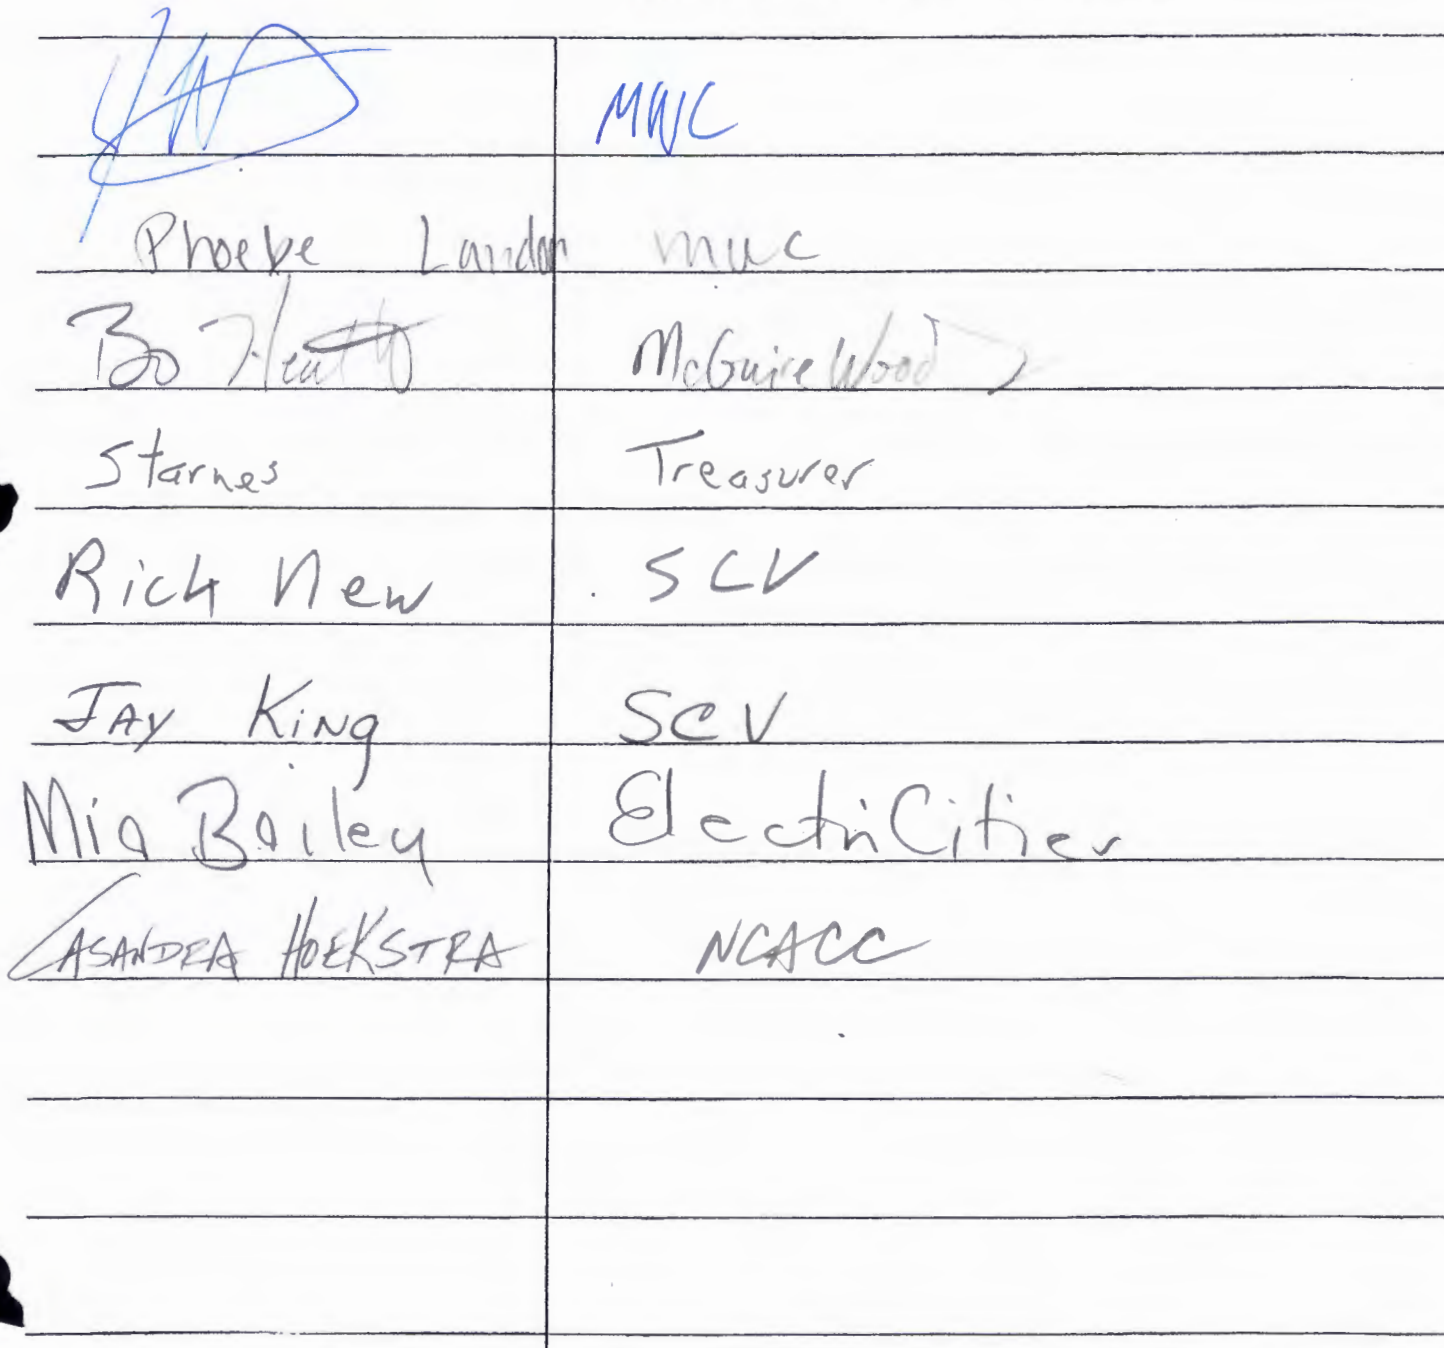 MWC
Phoebe Landon mwc
Bo Heath McGuireWoods
Starnes Treasurer
Rich New SCV
JAY KING SCV
Mia Bailey ElectriCities
CASANDRA HOEKSTRA NCACC